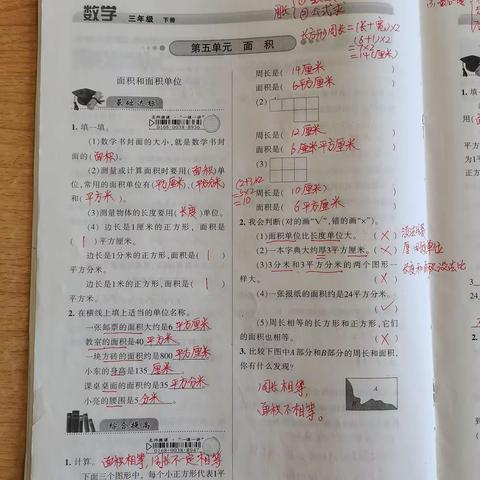 数学 三年级 下册
第五单元 面 积
面积和面积单位
基础达标
1. 填一填。
(1)数学书封面的大小,就是数学书封
面的(面积)。
(2)测量或计算面积时要用(面积)单
位,常用的面积单位有(平方厘米)、(平方分米)
和(平方米)。
(3)测量物体的长度要用(长度)单位。
(4)边长是1厘米的正方形,面积是
(1)平方厘米。
边长是1分米的正方形,面积是(1)
平方分米。
边长是1米的正方形,面积是(1)
平方米。
2. 在横线上填上适当的单位名称。
一张邮票的面积大约是6平方厘米
教室的面积是40平方米。
一块方砖的面积约是800平方厘米
小东的身高是135厘米。
课桌桌面的面积约是35平方分米
小亮的腰围是5分米。
综合提高
0168-0038-8947
1. 计算。面积相等,周长不一定相等
下面三个图形中,每个小正方形代表1平
长方形周长=(长+宽)×2
(6+1)×2
=7×2
=14(厘米)
周长是(14厘米)
面积是(6平方厘米)
(2)
周长是(12厘米)
面积是(6平方厘米)
(3)
(2+3)×2
=5×2
=10
周长是(10厘米)
面积是(6平方厘米)
2. 我会判断(对的画“√”,错的画“×”)。
(1)面积单位比长度单位大。(×)
(2)一本字典大约厚3平方厘米。(×)
(3)3分米和3平方分米的两个图形一
样大。(×)
(4)一张报纸的面积约是24平方分米。
(✓)
(5)周长相等的长方形和正方形,它们
的面积也相等。(×)
3. 比较下图中A部分和B部分的周长和面积,
你有什么发现?
周长相等,
面积不相等。
A